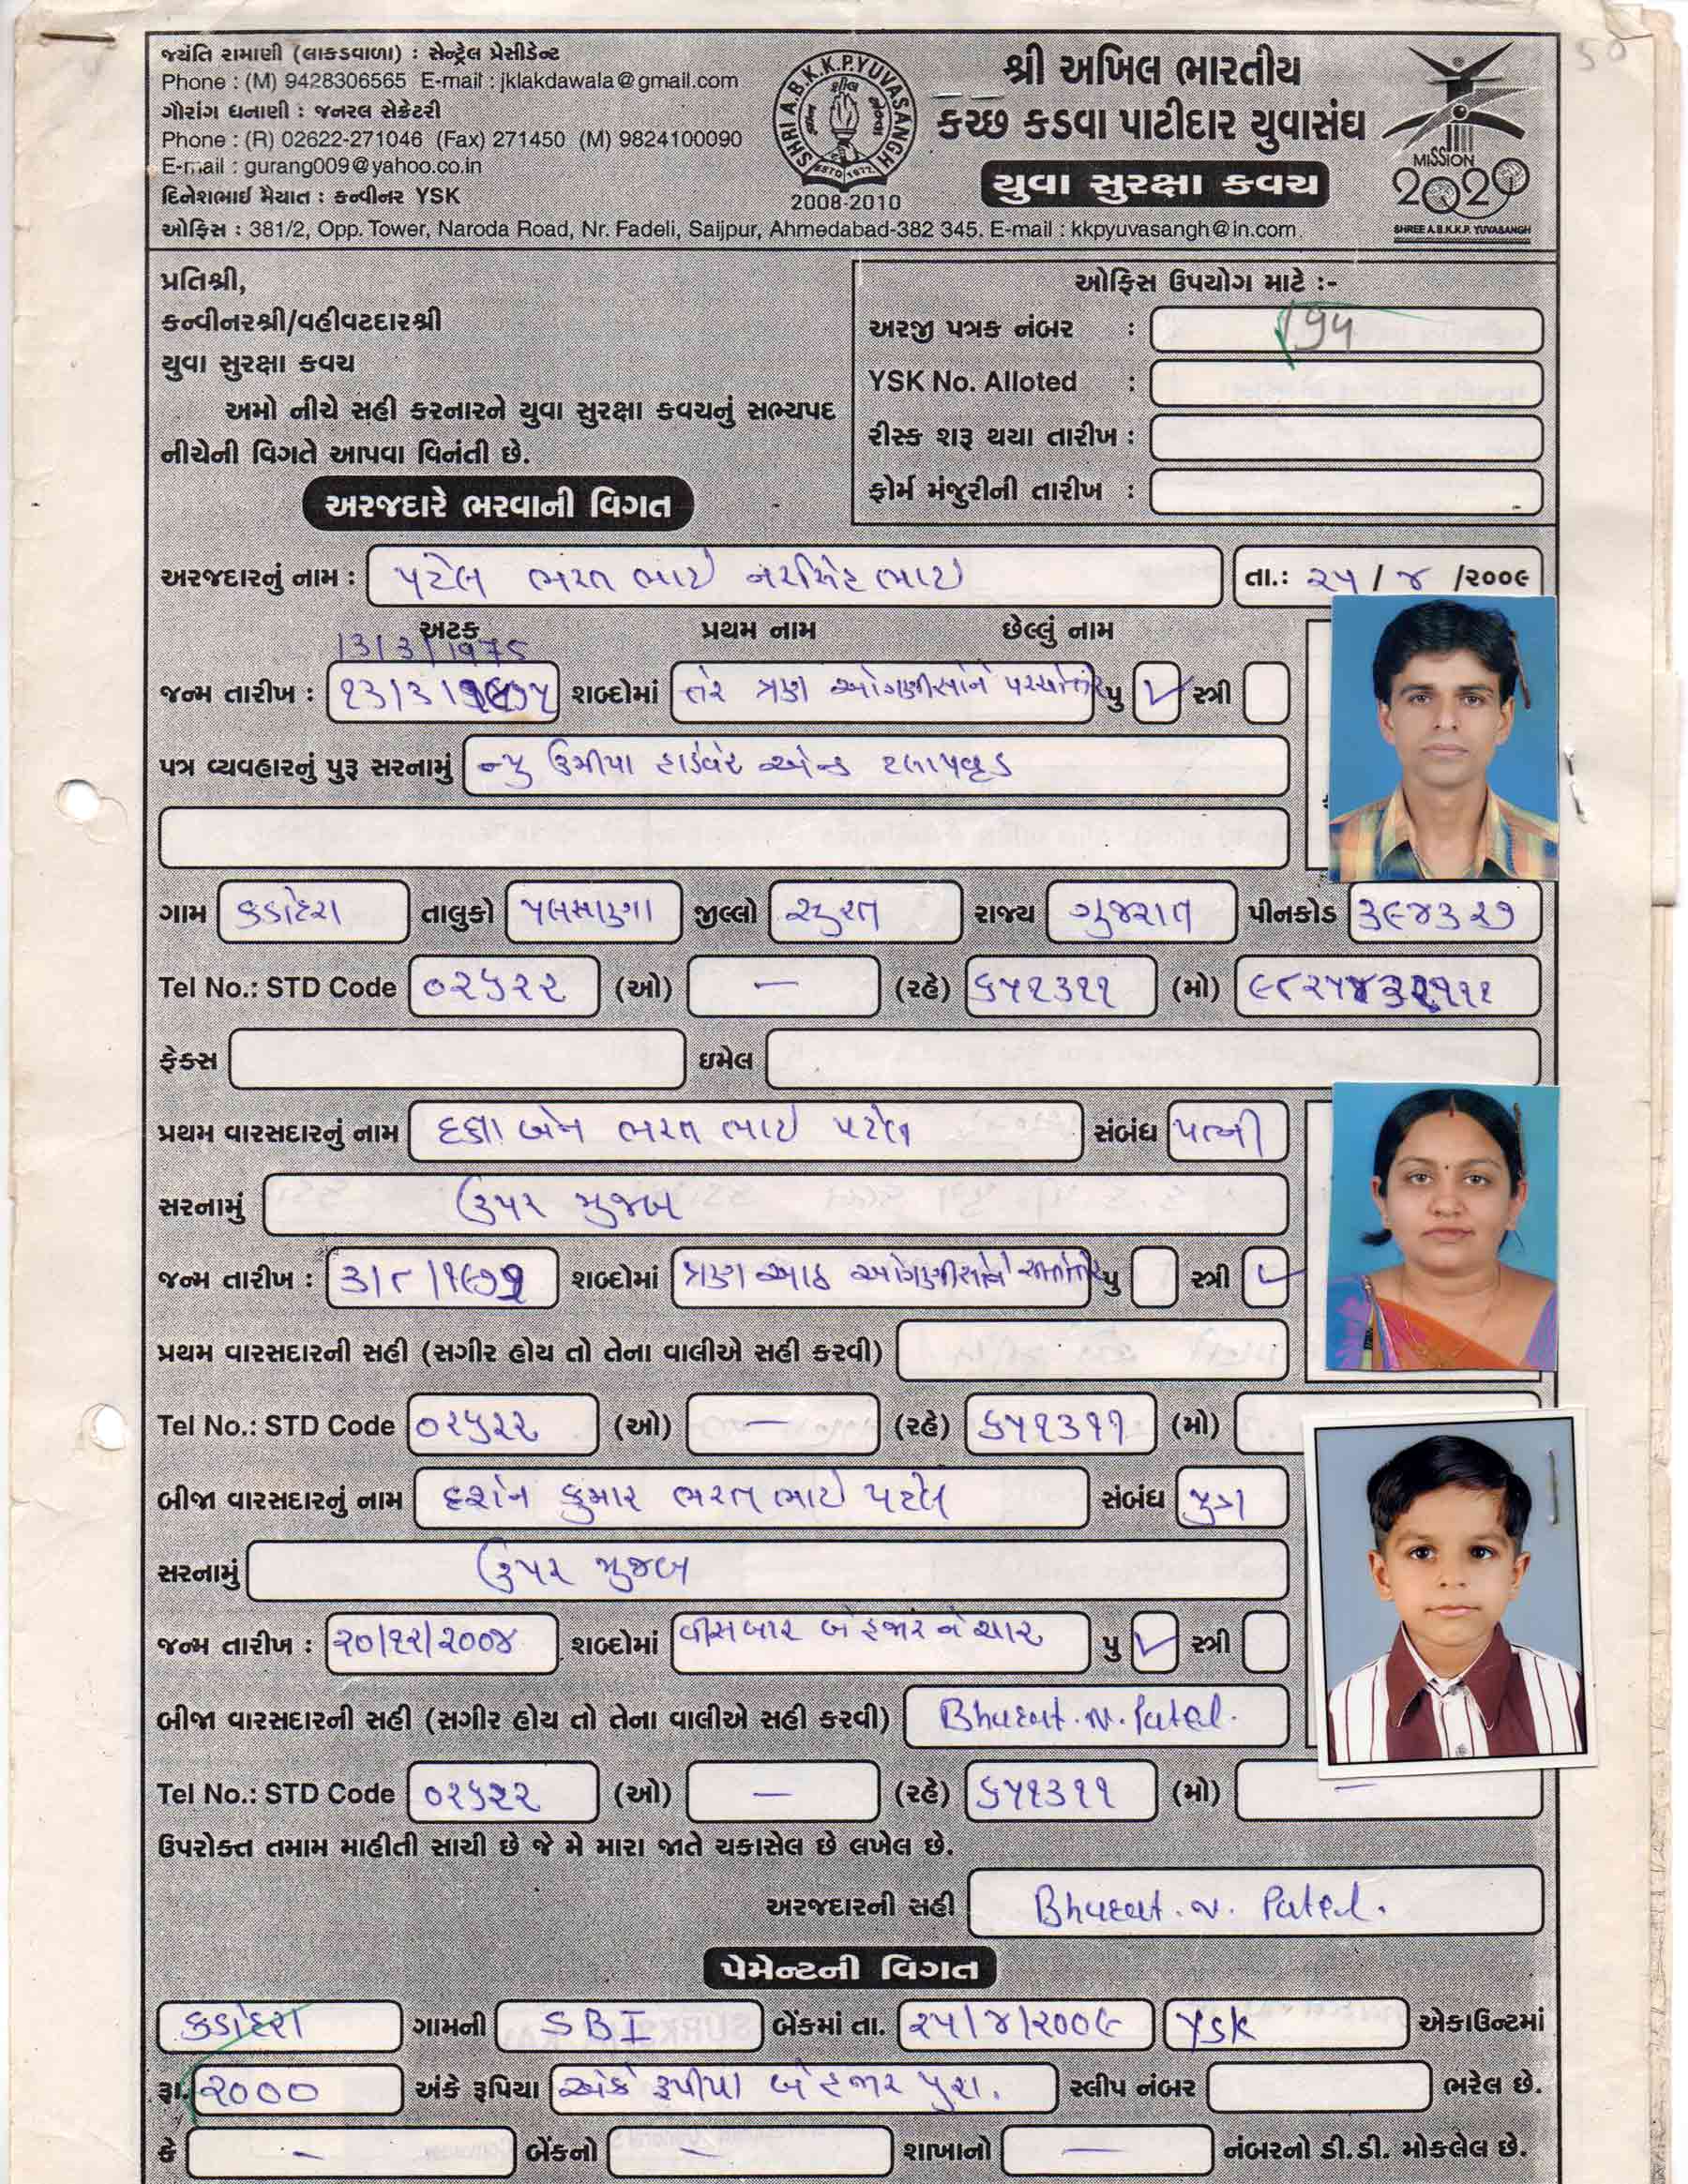 જયંતિ રામાણી (લાકડાવાળા) : સેન્ટ્રેલ પ્રેસીડેન્ટ
Phone : (M) 9428306565 E-mail : jklakdawala@gmail.com
ગૌરાંગ ધનાણી : જનરલ સેક્રેટરી
Phone : (R) 02622-271046 (Fax) 271450 (M) 9824100090
E-mail : gurang009@yahoo.co.in
દિનેશભાઈ મૈયાત : કન્વીનર YSK
SHRI A.B.K.K.P.YUVASANGH
ESTD.1977
2008-2010
શ્રી અખિલ ભારતીય
કચ્છ કડવા પાટીદાર યુવાસંઘ
યુવા સુરક્ષા કવચ
MISSION
2020
SHREE A.B.K.K.P. YUVASANGH
ઓફિસ : 381/2, Opp. Tower, Naroda Road, Nr. Fadeli, Saijpur, Ahmedabad-382 345. E-mail : kkpyuvasangh@in.com
50
પ્રતિશ્રી,
કન્વીનરશ્રી/વહીવટદારશ્રી
યુવા સુરક્ષા કવચ
અમો નીચે સહી કરનારને યુવા સુરક્ષા કવચનું સભ્યપદ
નીચેની વિગતે આપવા વિનંતી છે.
ઓફિસ ઉપયોગ માટે :-
અરજી પત્રક નંબર :
YSK No. Alloted :
રીસ્ક શરૂ થયા તારીખ :
ફોર્મ મંજુરીની તારીખ :
અરજદારે ભરવાની વિગત
અરજદારનું નામ : પટેલ ભરત ભાઈ નરસિંહ ભાઈ તા.: ૨૫ / ૪ /૨૦૦૯
અટક પ્રથમ નામ છેલ્લું નામ
13/3/1975
જન્મ તારીખ : ૧૩/૩/૧૯૭૫ શબ્દોમાં તેર ત્રણ ઓગણીસોને પચ્યોતેર પુ ✓ સ્ત્રી
પત્ર વ્યવહારનું પુરૂ સરનામું ન્યુ ઉમીયા હાર્ડવેર એન્ડ પ્લાયવુડ
ગામ કડોદરા તાલુકો પલસાણા જીલ્લો સુરત રાજ્ય ગુજરાત પીનકોડ ૩૯૪૩૨૭
Tel No.: STD Code ૦૨૬૨૨ (ઓ) — (રહે) ૬૫૧૩૧૧ (મો)
ફેક્સ ઇમેલ
પ્રથમ વારસદારનું નામ દક્ષા બેન ભરત ભાઈ પટેલ સંબંધ પત્ની
સરનામું ઉપર મુજબ
જન્મ તારીખ : ૩/૮/૧૯૭૭ શબ્દોમાં ત્રણ આઠ ઓગણીસોને સીતોતેર પુ સ્ત્રી ✓
પ્રથમ વારસદારની સહી (સગીર હોય તો તેના વાલીએ સહી કરવી)
Tel No.: STD Code ૦૨૬૨૨ (ઓ) — (રહે) ૬૫૧૩૧૧ (મો)
બીજા વારસદારનું નામ દર્શન કુમાર ભરત ભાઈ પટેલ સંબંધ પુત્ર
સરનામું ઉપર મુજબ
જન્મ તારીખ : ૨૦/૧૨/૨૦૦૪ શબ્દોમાં વીસ બાર બે હજાર ને ચાર પુ ✓ સ્ત્રી
બીજા વારસદારની સહી (સગીર હોય તો તેના વાલીએ સહી કરવી) Bharat. N. Patel.
Tel No.: STD Code ૦૨૬૨૨ (ઓ) — (રહે) ૬૫૧૩૧૧ (મો) —
ઉપરોક્ત તમામ માહીતી સાચી છે જે મે મારા જાતે ચકાસેલ છે લખેલ છે.
અરજદારની સહી Bharat. N. Patel.
પેમેન્ટની વિગત
કડોદરા ગામની SBI બેંકમાં તા. ૨૫/૪/૨૦૦૯ YSK એકાઉન્ટમાં
રૂા. ૨૦૦૦ અંકે રૂપિયા અંકે રૂપીયા બે હજાર પુરા. સ્લીપ નંબર ભરેલ છે.
કે — બેંકનો — શાખાનો — નંબરનો ડી.ડી. મોકલેલ છે.